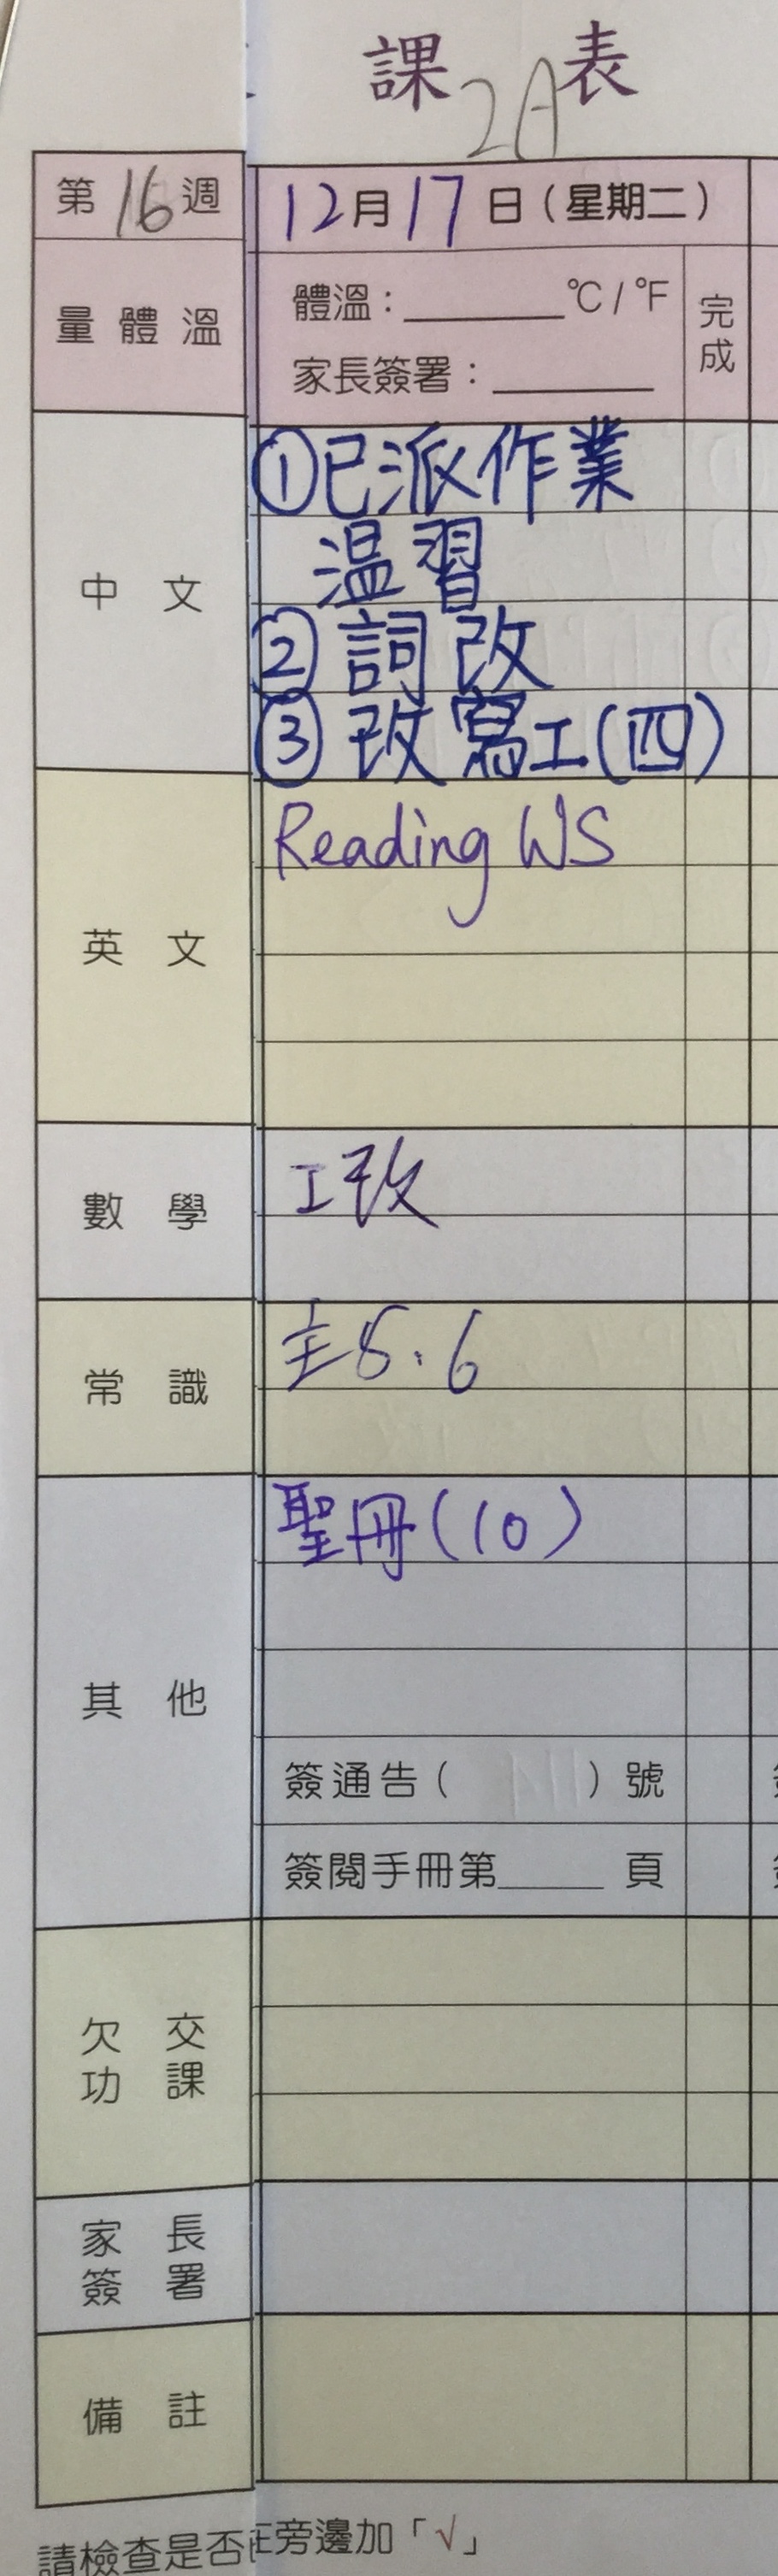 課2A表
第16週 12月17日(星期二)
量體溫
體溫:______°C/°F
家長簽署:______
完成
中文
①已派作業
温習
②詞改
③改寫工(四)
英文
Reading WS
數學
工改
常識
主5、6
其他
聖冊(10)
簽通告( )號
簽閱手冊第______頁
欠交
功課
家長
簽署
備註
請檢查是否
旁邊加「√」